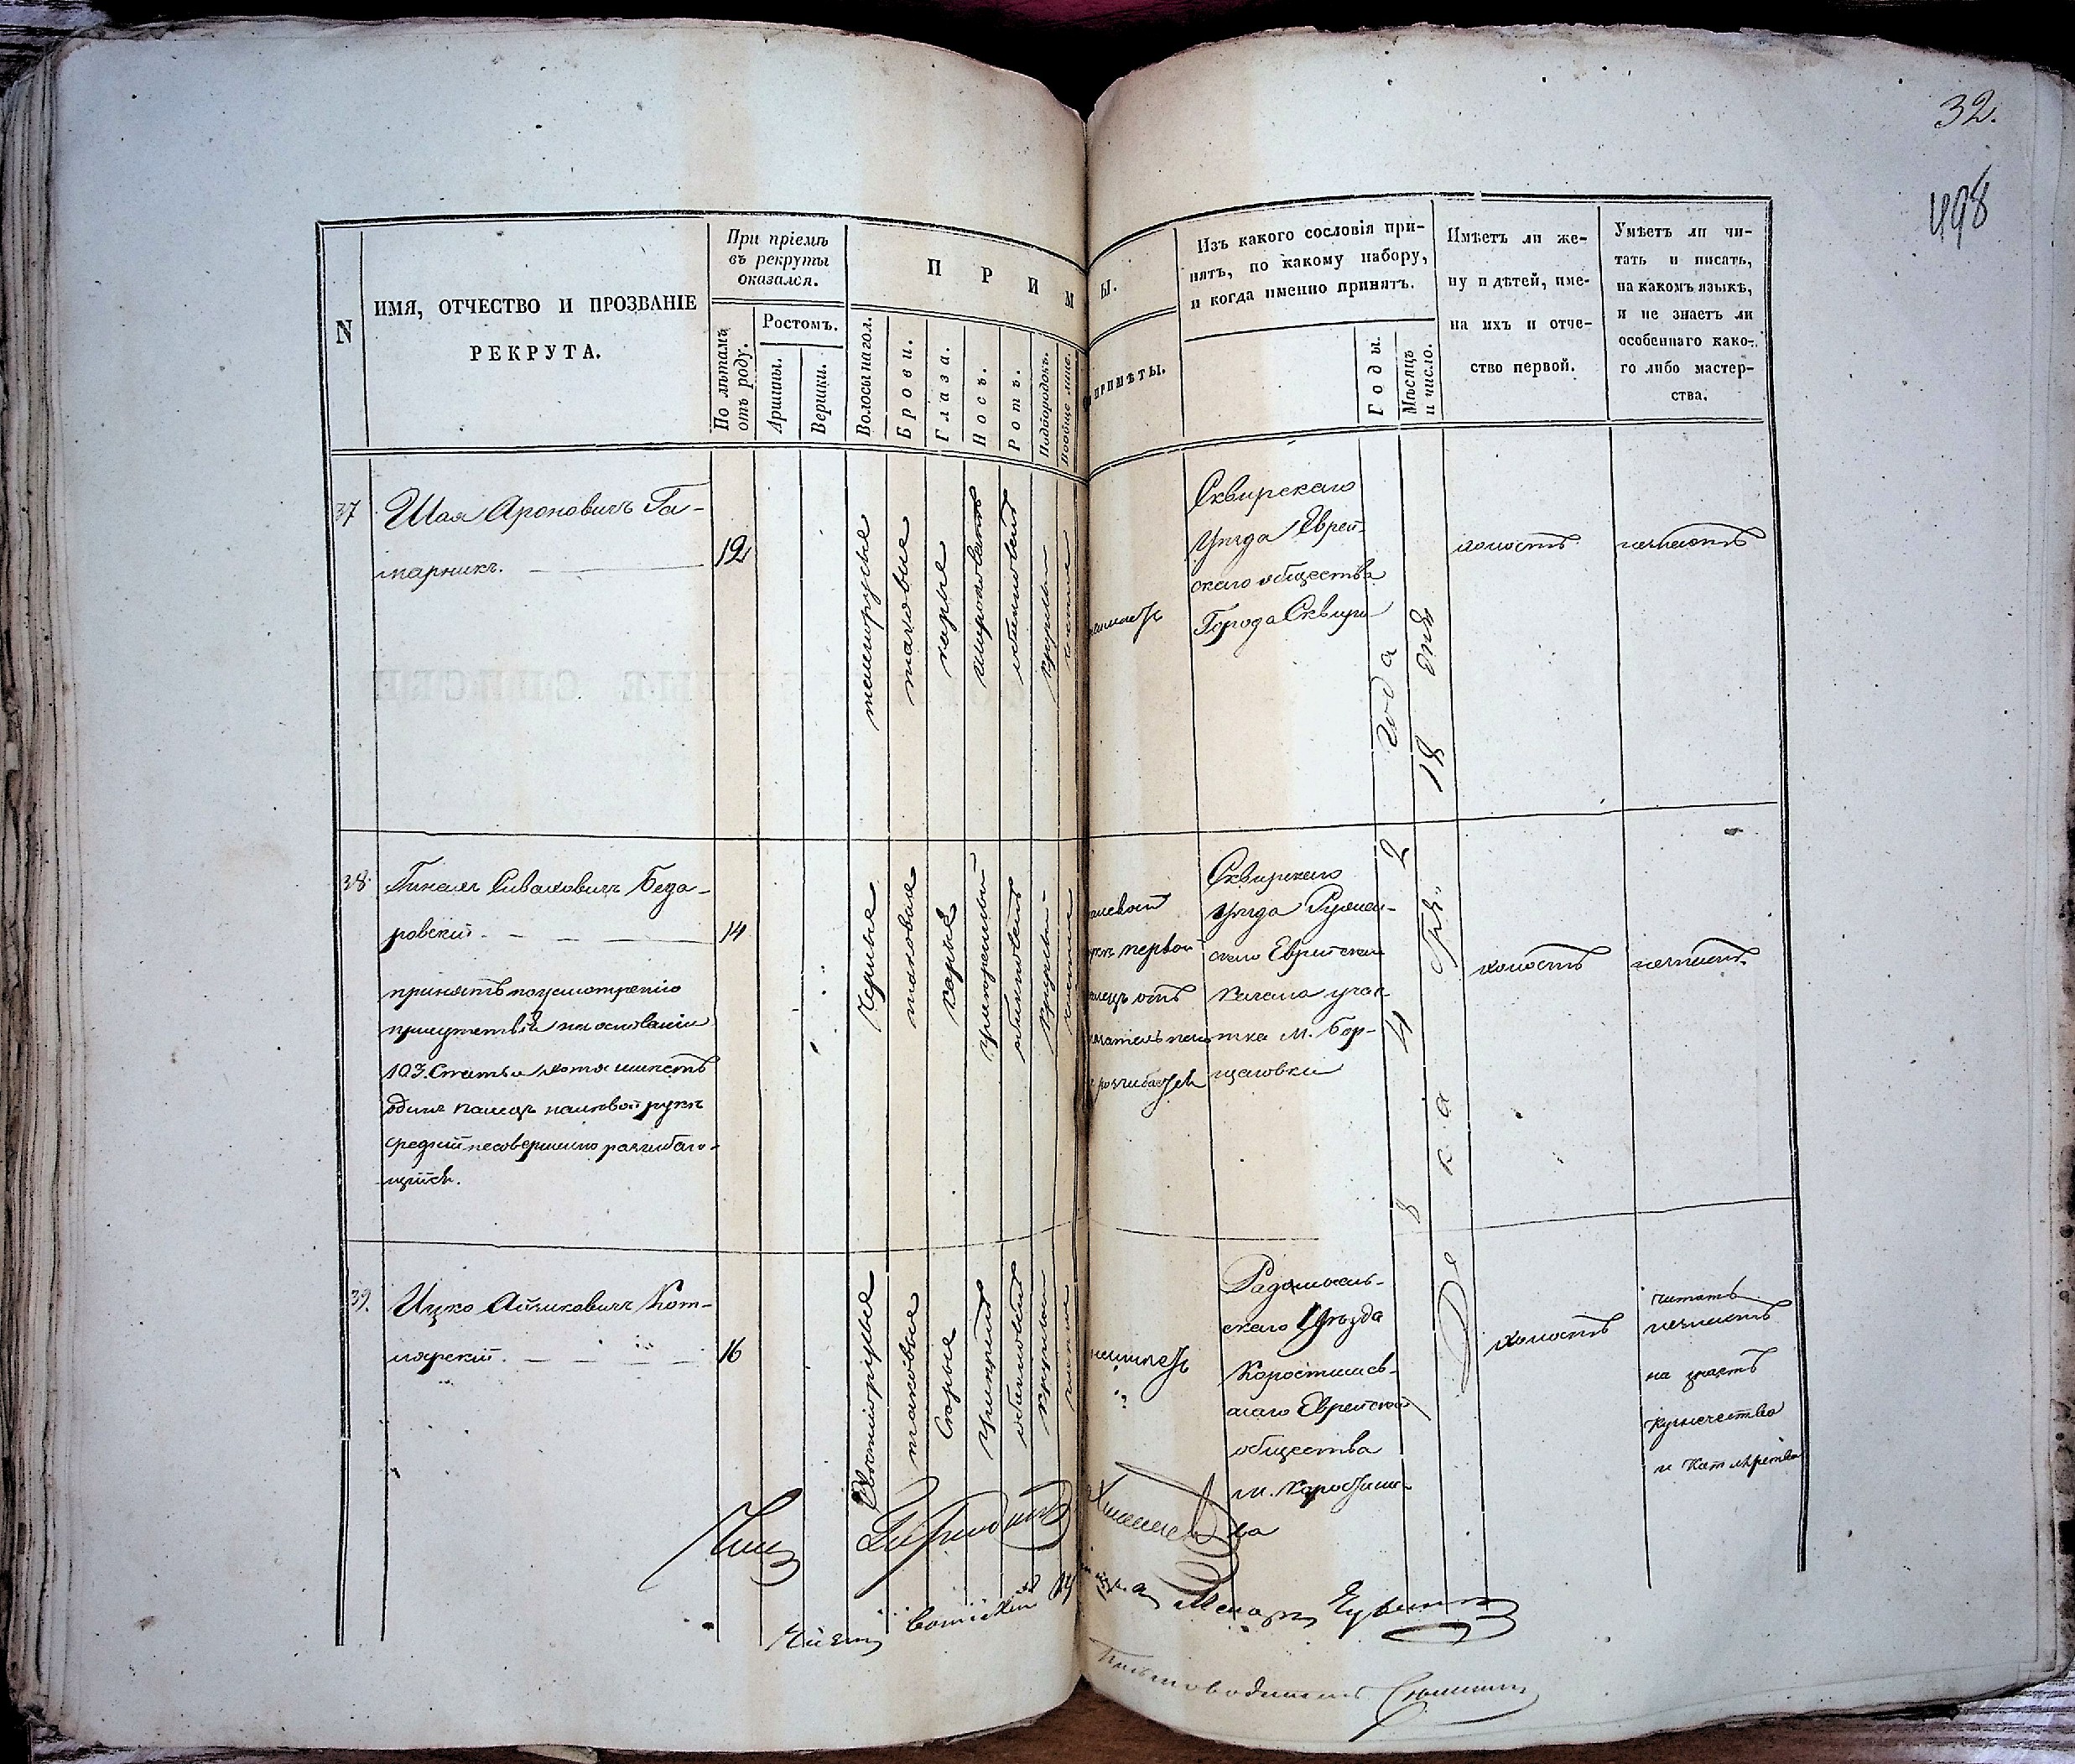 32.
498
N
ИМЯ, ОТЧЕСТВО И ПРОЗВАНІЕ
РЕКРУТА.
При пріемѣ
въ рекруты
оказался.
По лѣтамъ
отъ роду.
Ростомъ.
Аршины.
Вершки.
П Р И М
Волосы на гол.
Брови.
Глаза.
Носъ.
Ротъ.
Подбородокъ.
Вообще лице.
Ы.
ПРИМѢТЫ.
Изъ какого сословія при-
нятъ, по какому набору,
и когда именно принятъ.
Годы.
Мѣсяцъ
и число.
Имѣетъ ли же-
ну и дѣтей, име-
на ихъ и отче-
ство первой.
Умѣетъ ли чи-
тать и писать,
на какомъ языкѣ,
и не знаетъ ли
особеннаго како-
го либо мастер-
ства.
37
Шая Ароновичъ Га-
тарникъ.
12
темнорусые
таковые
карые
широковатъ
обыкновенъ
круглый
чистое
неимѣетъ
Сквирскаго
Уѣзда Еврей-
скаго общества
Города Сквиры
холостъ
неумѣетъ
38.
Беза-
ровскій.
14
принятъ по усмотрѣнію
присутствія на основаніи
103. Статьи хотя имѣетъ
одинъ палецъ на лѣвой рукѣ
средній несовершенно разгибаю-
щійся.
Черные
таковыя
Карые
умѣренный
обыкновенъ
Круглый
чистое
первой
отъ
Сквирскаго
Уѣзда Ружин-
скаго Еврейскаго
Кагала учас-
тка м. Бор-
щаговки
холостъ
неумѣетъ.
39.
Ицко Айзиковичъ Кот-
лярскій.
16
Свѣтлорусые
таковые
Сѣрые
умѣренъ
обыкновенъ
круглый
чистое
неимѣетъ
Радомысль-
скаго Уѣзда
Коростышев-
скаго Еврейскаго
общества
м. Коростыше-
ва
холостъ
читать
неумѣетъ
на знаетъ
Кузнечество
и Котлярство
1842 года
Декабря 18 дня
Членъ
Письмоводитель